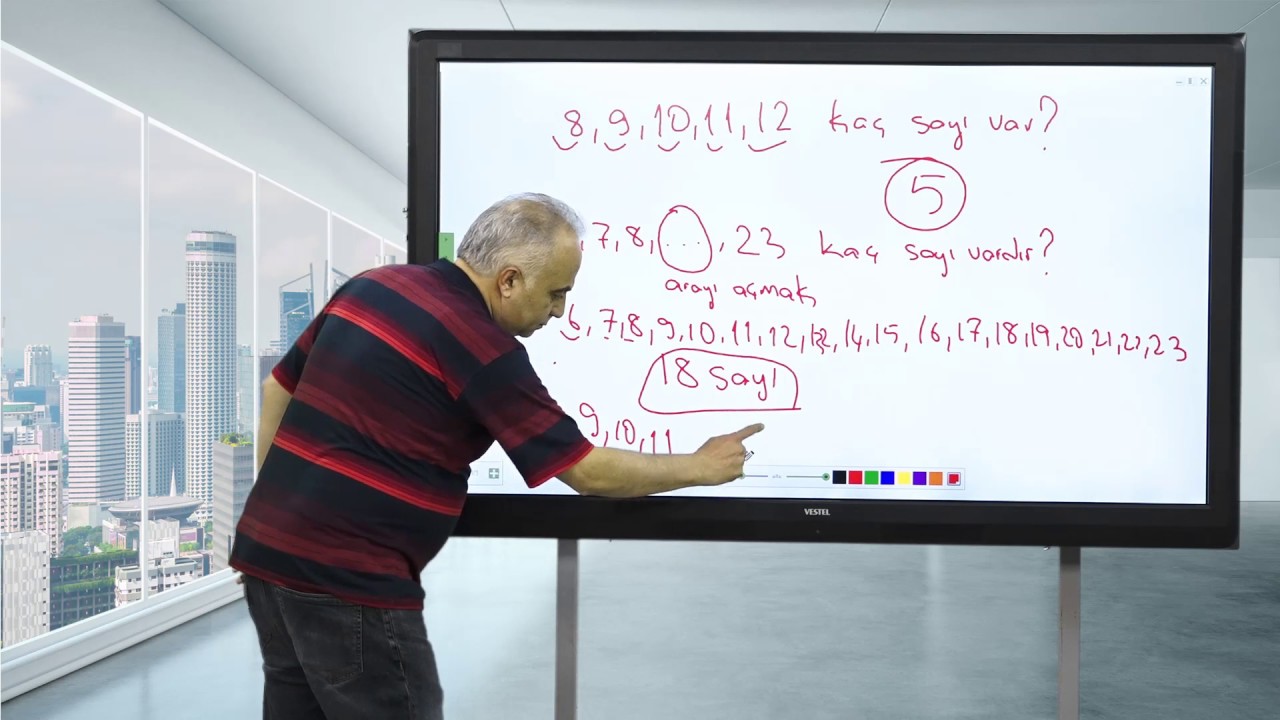 8, 9, 10, 11, 12 kaç sayı var?
5
,7,8, ..., 23 kaç sayı vardır?
arayı açmak
6, 7, 8, 9, 10, 11, 12, 13, 14, 15, 16, 17, 18, 19, 20, 21, 22, 23
18 sayı
9, 10, 11
VESTEL